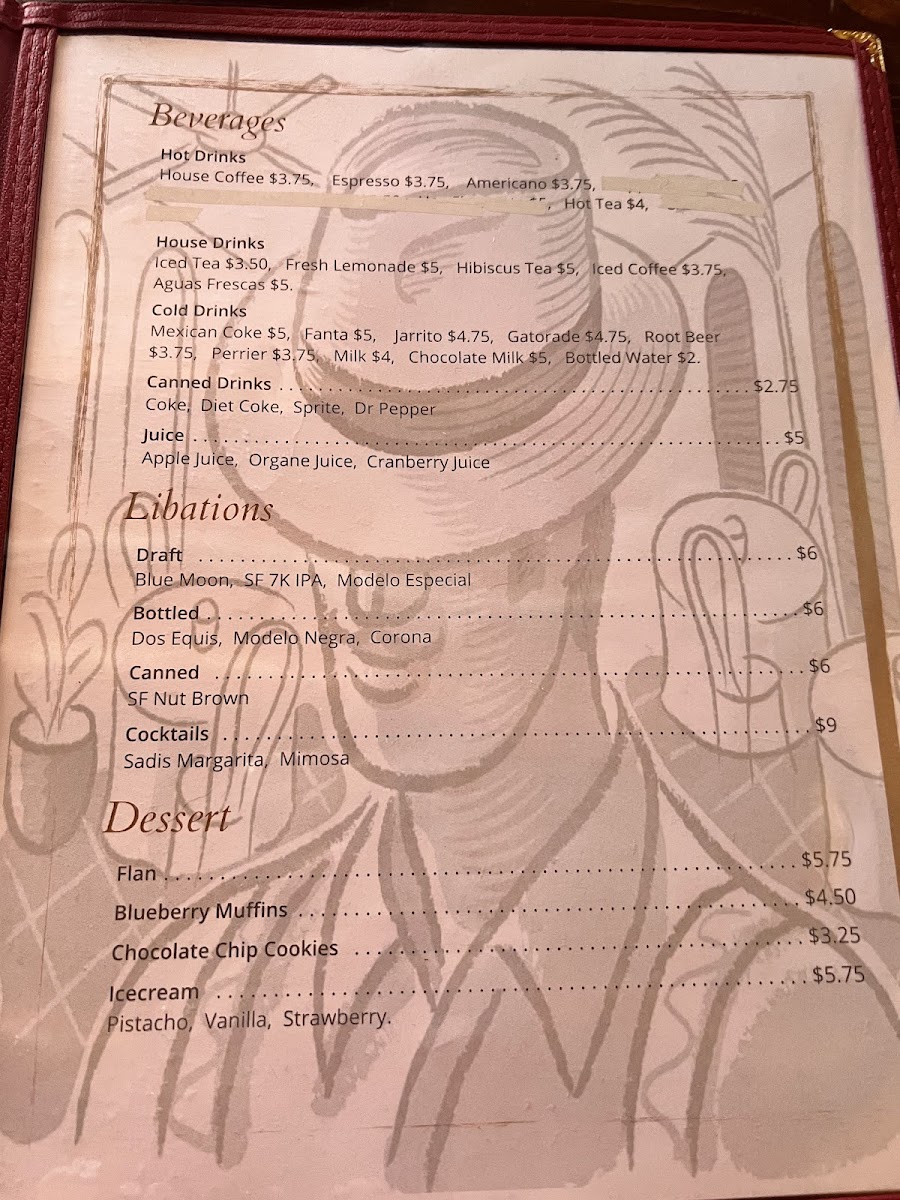 Beverages
Hot Drinks
House Coffee $3.75, Espresso $3.75, Americano $3.75,
Hot Tea $4,
House Drinks
Iced Tea $3.50, Fresh Lemonade $5, Hibiscus Tea $5, Iced Coffee $3.75,
Aguas Frescas $5.
Cold Drinks
Mexican Coke $5, Fanta $5, Jarrito $4.75, Gatorade $4.75, Root Beer
$3.75, Perrier $3.75, Milk $4, Chocolate Milk $5, Bottled Water $2.
Canned Drinks ........................................ $2.75
Coke, Diet Coke, Sprite, Dr Pepper
Juice ........................................ $5
Apple Juice, Organe Juice, Cranberry Juice
Libations
Draft ........................................ $6
Blue Moon, SF 7K IPA, Modelo Especial
Bottled ........................................ $6
Dos Equis, Modelo Negra, Corona
Canned ........................................ $6
SF Nut Brown
Cocktails ........................................ $9
Sadis Margarita, Mimosa
Dessert
Flan ........................................ $5.75
Blueberry Muffins ........................................ $4.50
Chocolate Chip Cookies ........................................ $3.25
Icecream ........................................ $5.75
Pistacho, Vanilla, Strawberry.